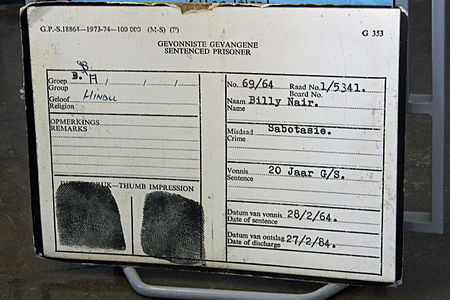 G.P.-S.18864—1973-74—100 000 (M-S) (P)
G 353
GEVONNISTE GEVANGENE
SENTENCED PRISONER
B
Groep B. A / / / /
Group
Geloof HINDU
Religion
OPMERKINGS
REMARKS
DRUK—THUMB IMPRESSION
No. 69/64 Raad No. 1/5341.
Board No.
Naam Billy Nair.
Name
Misdaad Sabotasie.
Crime
Vonnis 20 Jaar G/S.
Sentence
Datum van vonnis 28/2/64.
Date of sentence
Datum van ontslag 27/2/84.
Date of discharge